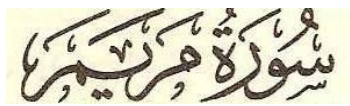 سُورَةُ مَرْيَمَ